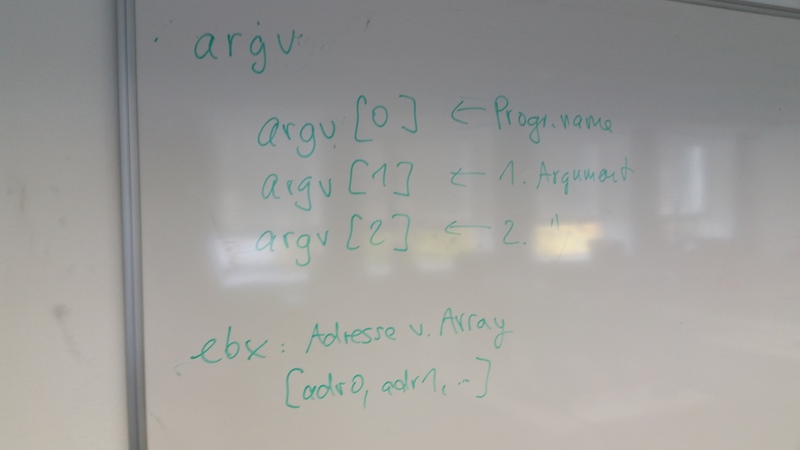 argv
argv [0] ← Progr.name
argv [1] ← 1. Argument
argv [2] ← 2. "
ebx: Adresse v. Array
[adr0, adr1, ..]